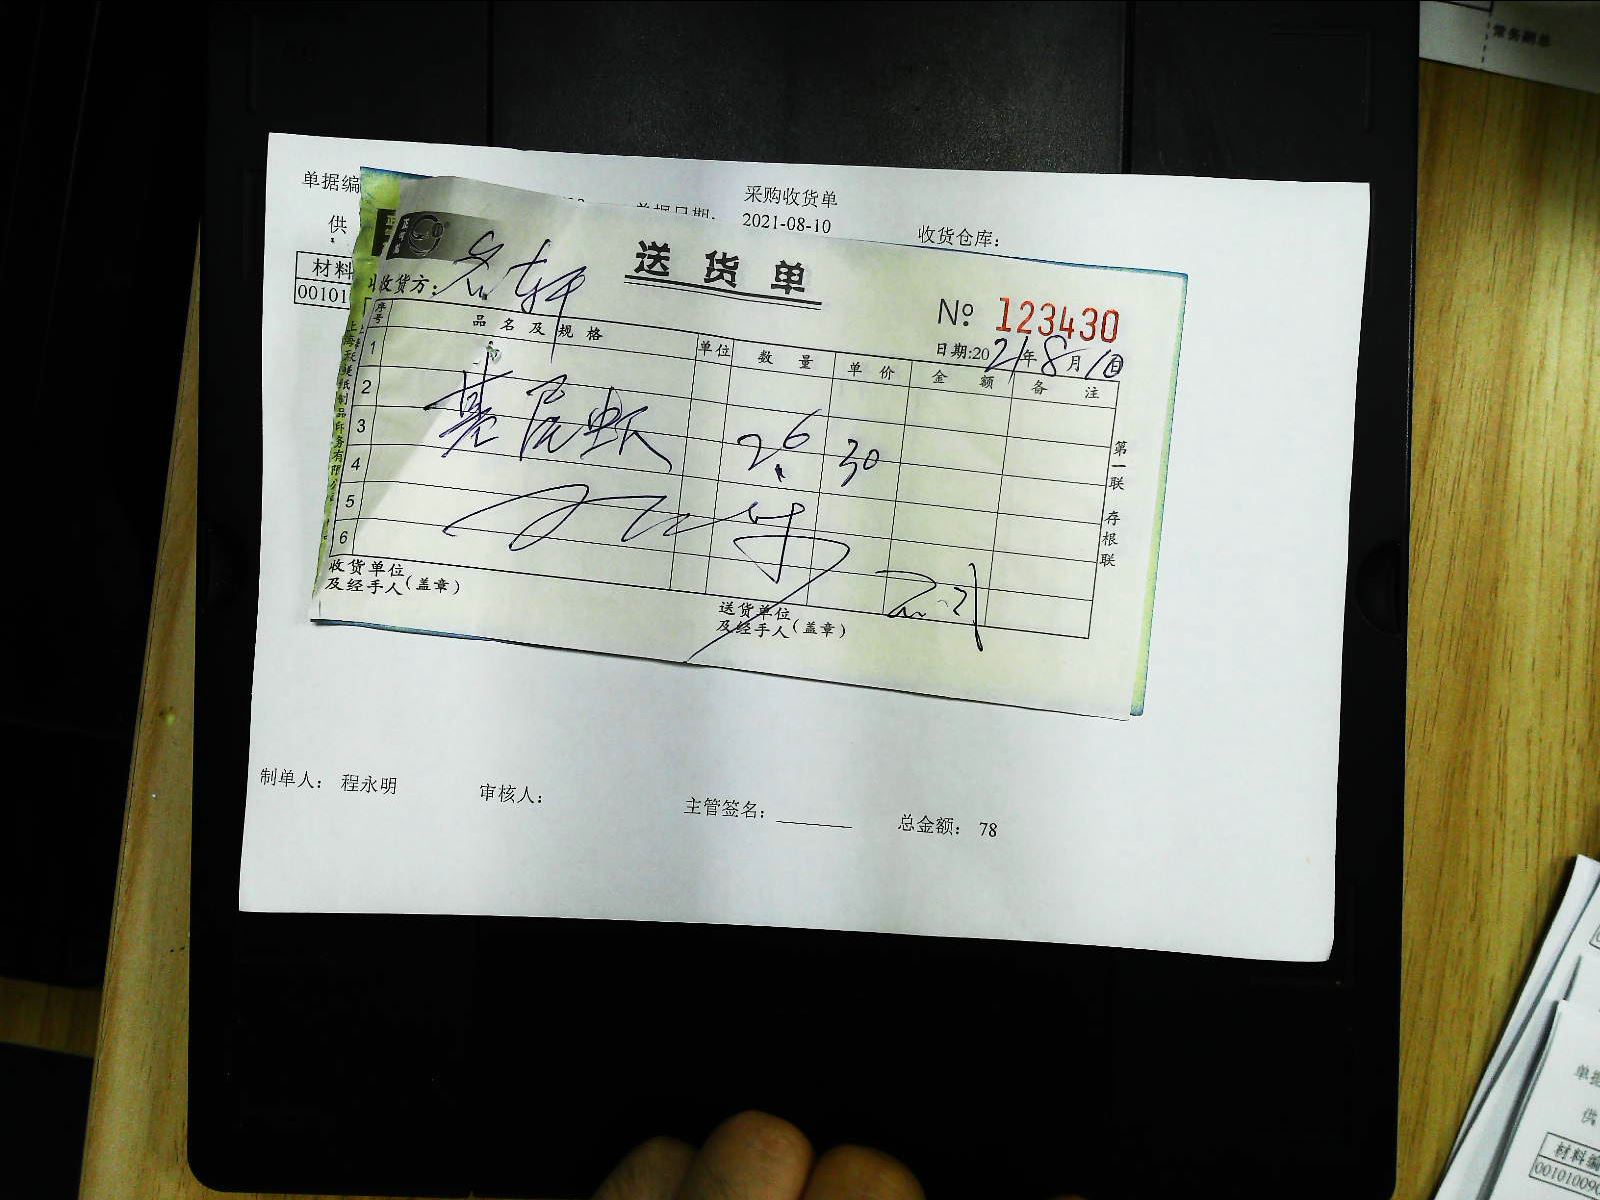 常务副总
采购收货单
单据编
单据日期: 2021-08-10
收货仓库:
供
材料
00101
送货单
收货方: 名轩
№ 123430
日期:2021年8月10日
序号 品名及规格 单位 数量 单价 金额 备注
1
2
3 基尾虾 2.6 30
4
5
6
第一联 存根联
收货单位
及经手人(盖章)
送货单位
及经手人(盖章)
制单人: 程永明
审核人:
主管签名:
总金额: 78
单据
供
材料编
00101009